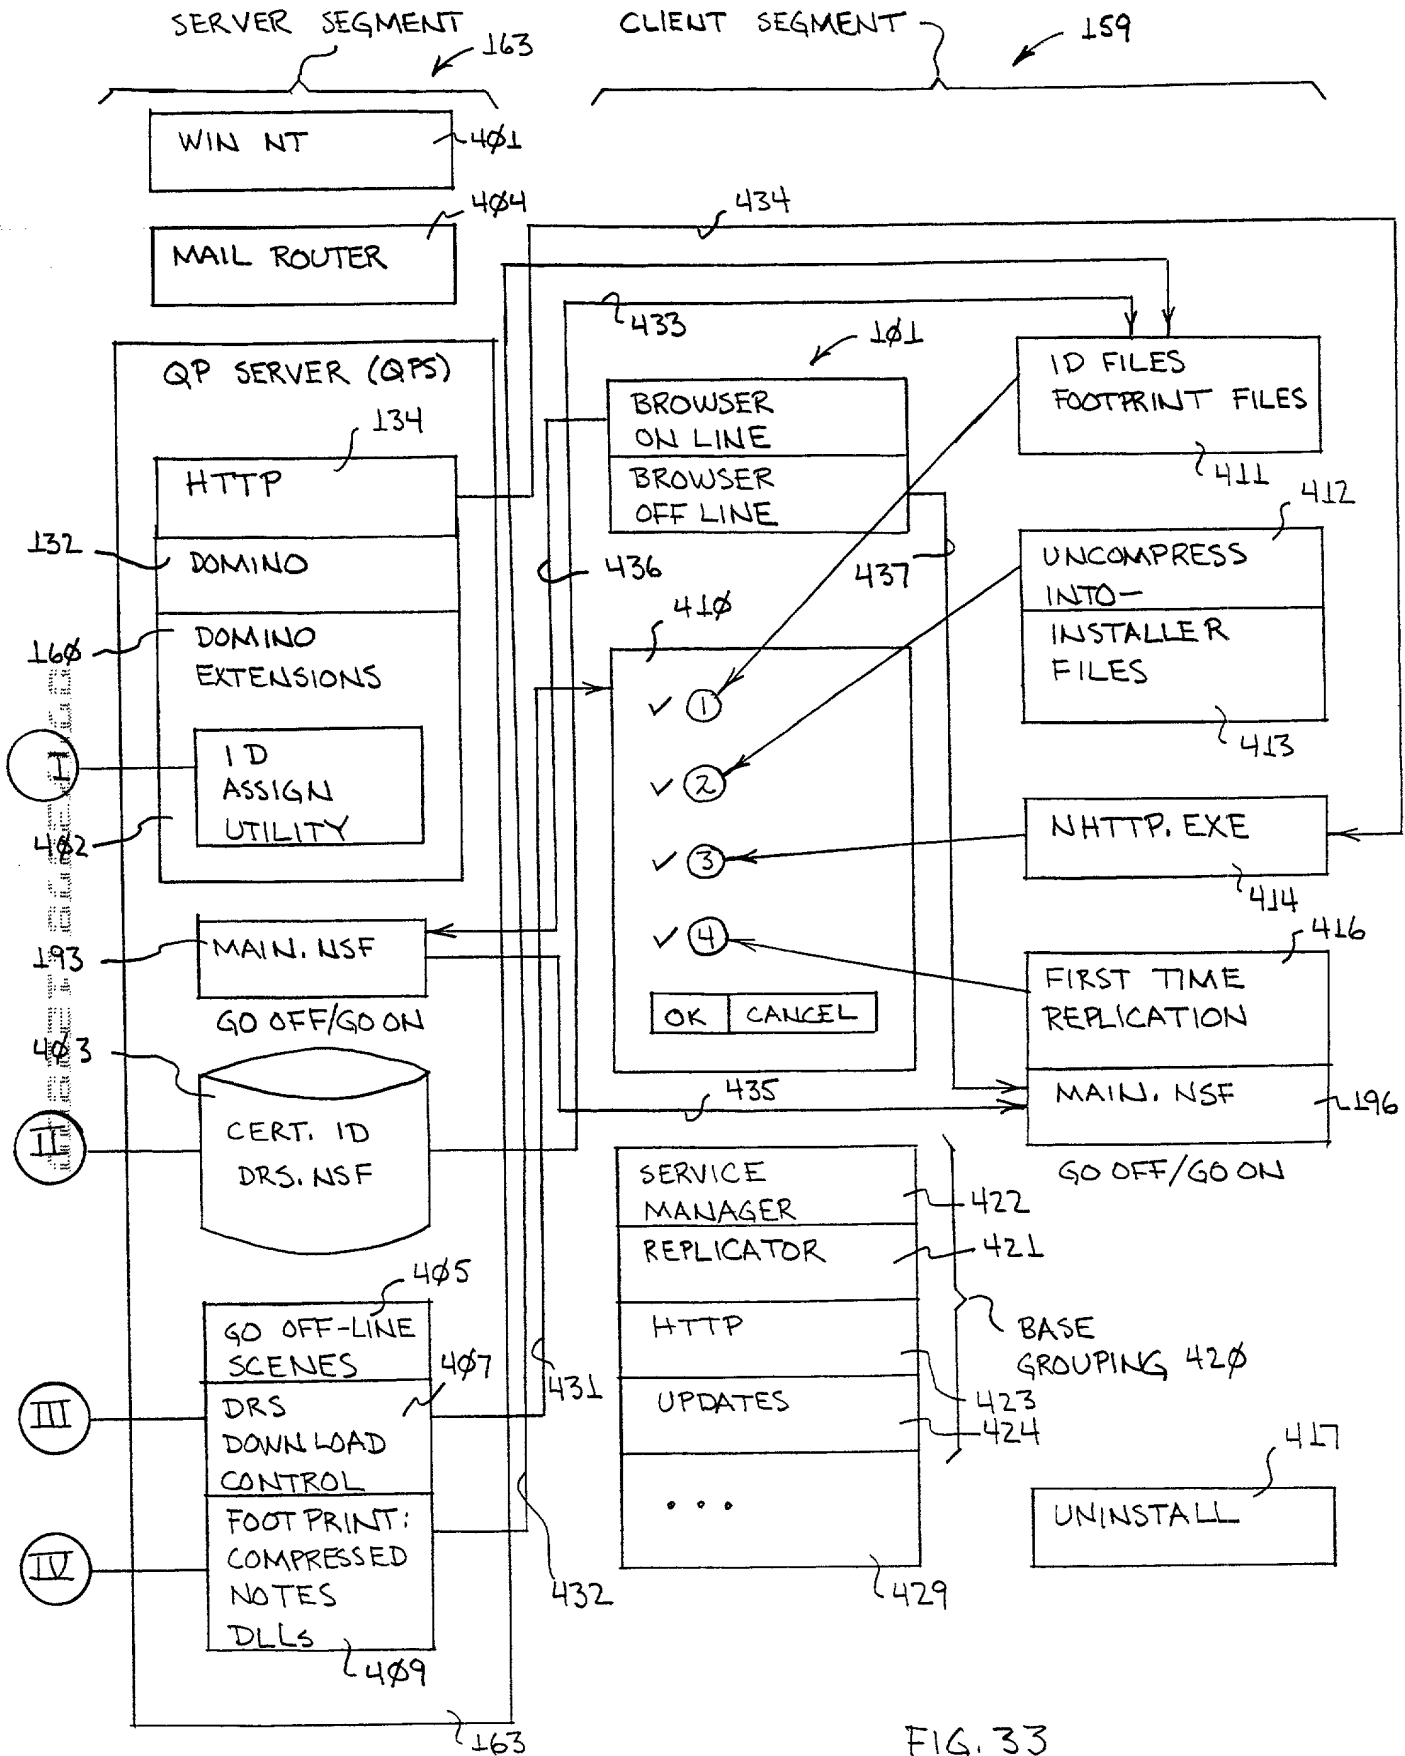 SERVER SEGMENT
163
CLIENT SEGMENT
159
WIN NT
401
404
MAIL ROUTER
434
433
QP SERVER (QPS)
134
HTTP
132
DOMINO
160
DOMINO
EXTENSIONS
I
ID
ASSIGN
UTILITY
402
193
MAIN.NSF
GO OFF/GO ON
403
II
CERT. ID
DRS.NSF
405
GO OFF-LINE
SCENES
407
III
DRS
DOWNLOAD
CONTROL
IV
FOOTPRINT:
COMPRESSED
NOTES
DLLs
409
163
101
BROWSER
ON LINE
BROWSER
OFF LINE
436
437
410
1
2
3
4
OK
CANCEL
435
431
432
SERVICE
MANAGER
422
REPLICATOR
421
HTTP
423
UPDATES
424
...
429
BASE
GROUPING 420
ID FILES
FOOTPRINT FILES
411
412
UNCOMPRESS
INTO-
INSTALLER
FILES
413
NHTTP.EXE
414
416
FIRST TIME
REPLICATION
MAIN.NSF
196
GO OFF/GO ON
417
UNINSTALL
FIG. 33